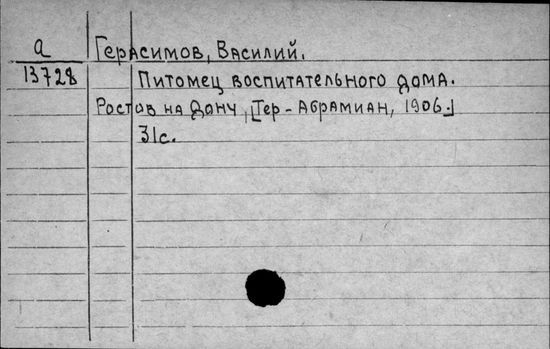 а Герасимов, Василий.
13728 Питомец воспитательного дома.
Ростов на Дону, [Тер-Абрамиан, 1906.]
31с.